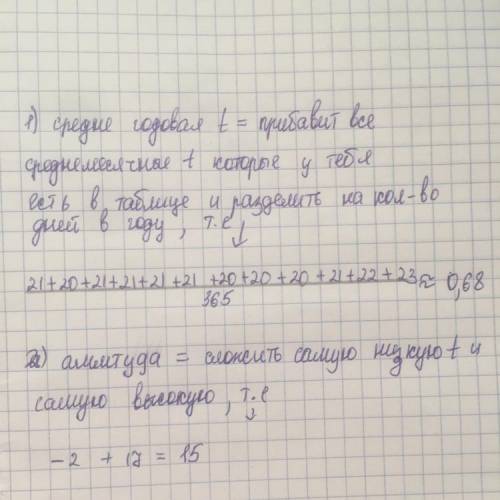 1) средне годовая t = прибавит все
среднемесячные t которые у тебя
есть в таблице и разделить на кол-во
дней в году, т.е
21+20+21+21+21+21+20+20+20+21+22+23 ≈ 0,68
365
2) амлитуда = сложить самую низкую t и
самую высокую, т.е
-2 + 17 = 15